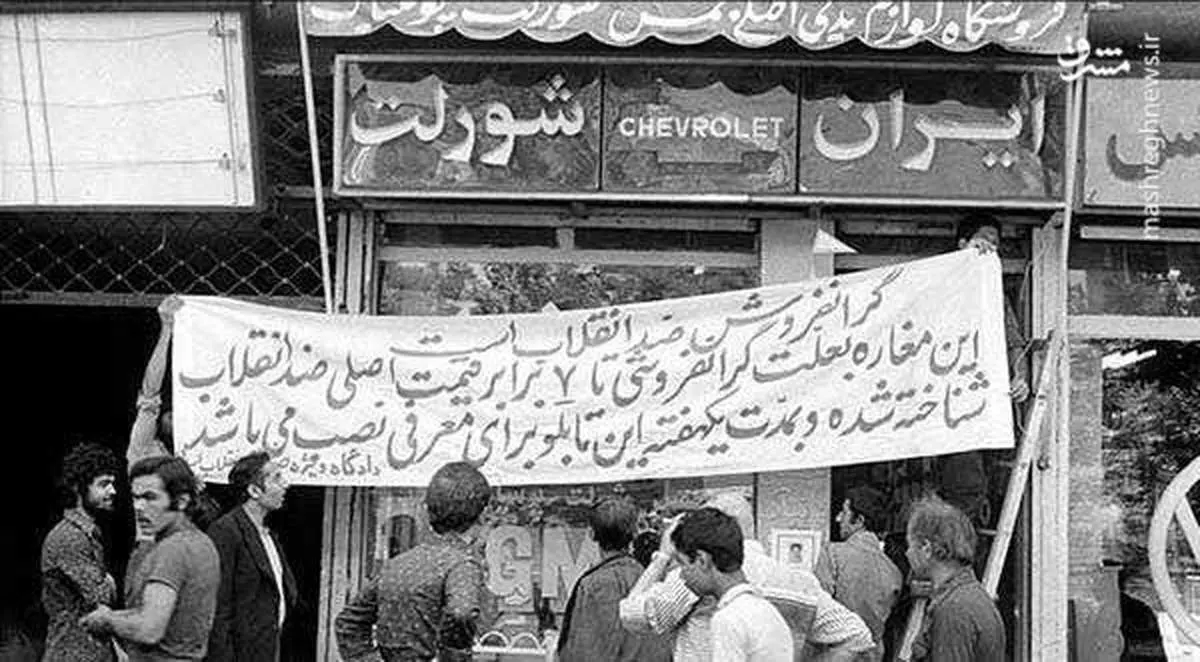 فروشگاه لوازم یدکی اصلی شورلت
مشرق
mashreghnews.ir
ایران CHEVROLET شورلت
س
گرانفروش ضد انقلاب است
این مغازه بعلت گرانفروشی تا ۷ برابر قیمت اصلی ضد انقلاب
شناخته شده و بمدّت یکهفته این تابلو برای معرفی نصب می باشد
دادگاه ویژه
GM